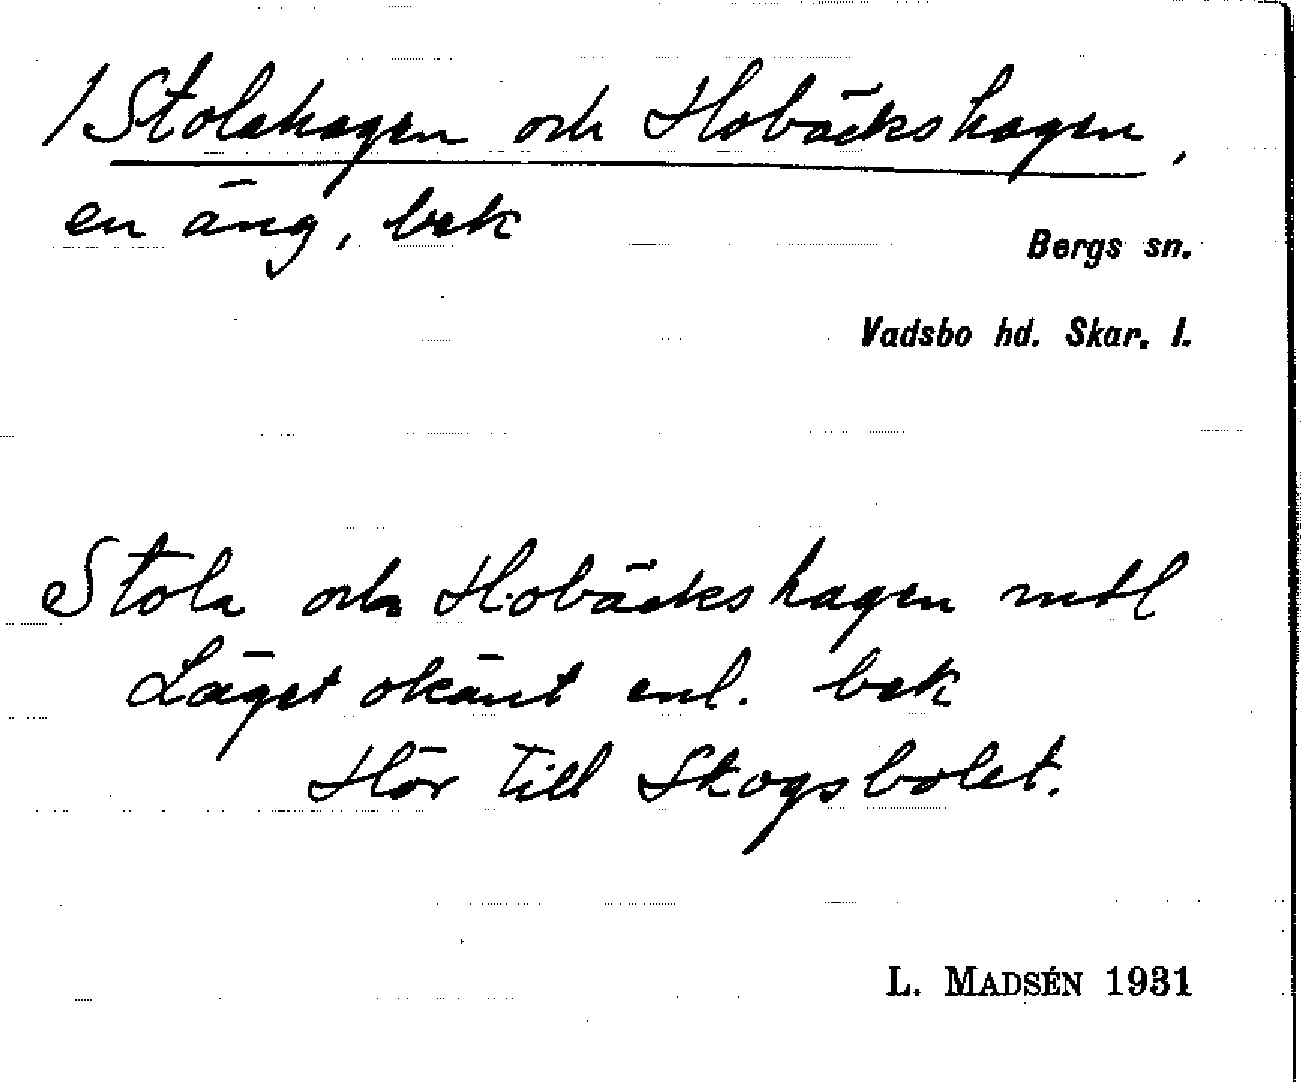 /Stolahagen och Hobäckshagen,
en äng, bek
Bergs sn.
Vadsbo hd. Skar. l.
Stola och Hobäckshagen mtl
Läget okänt enl. bek
Hör till Skogsbolet.
L. MADSÉN 1931